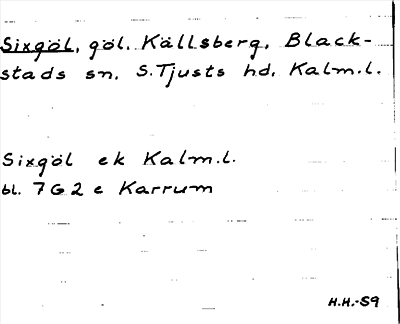 Sixgöl, göl, Källsberg, Black-
stads sn, S.Tjusts hd, Kalm.l.
Sixgöl ek Kalm.l.
bl. 7G2e Karrum
H.H.-59